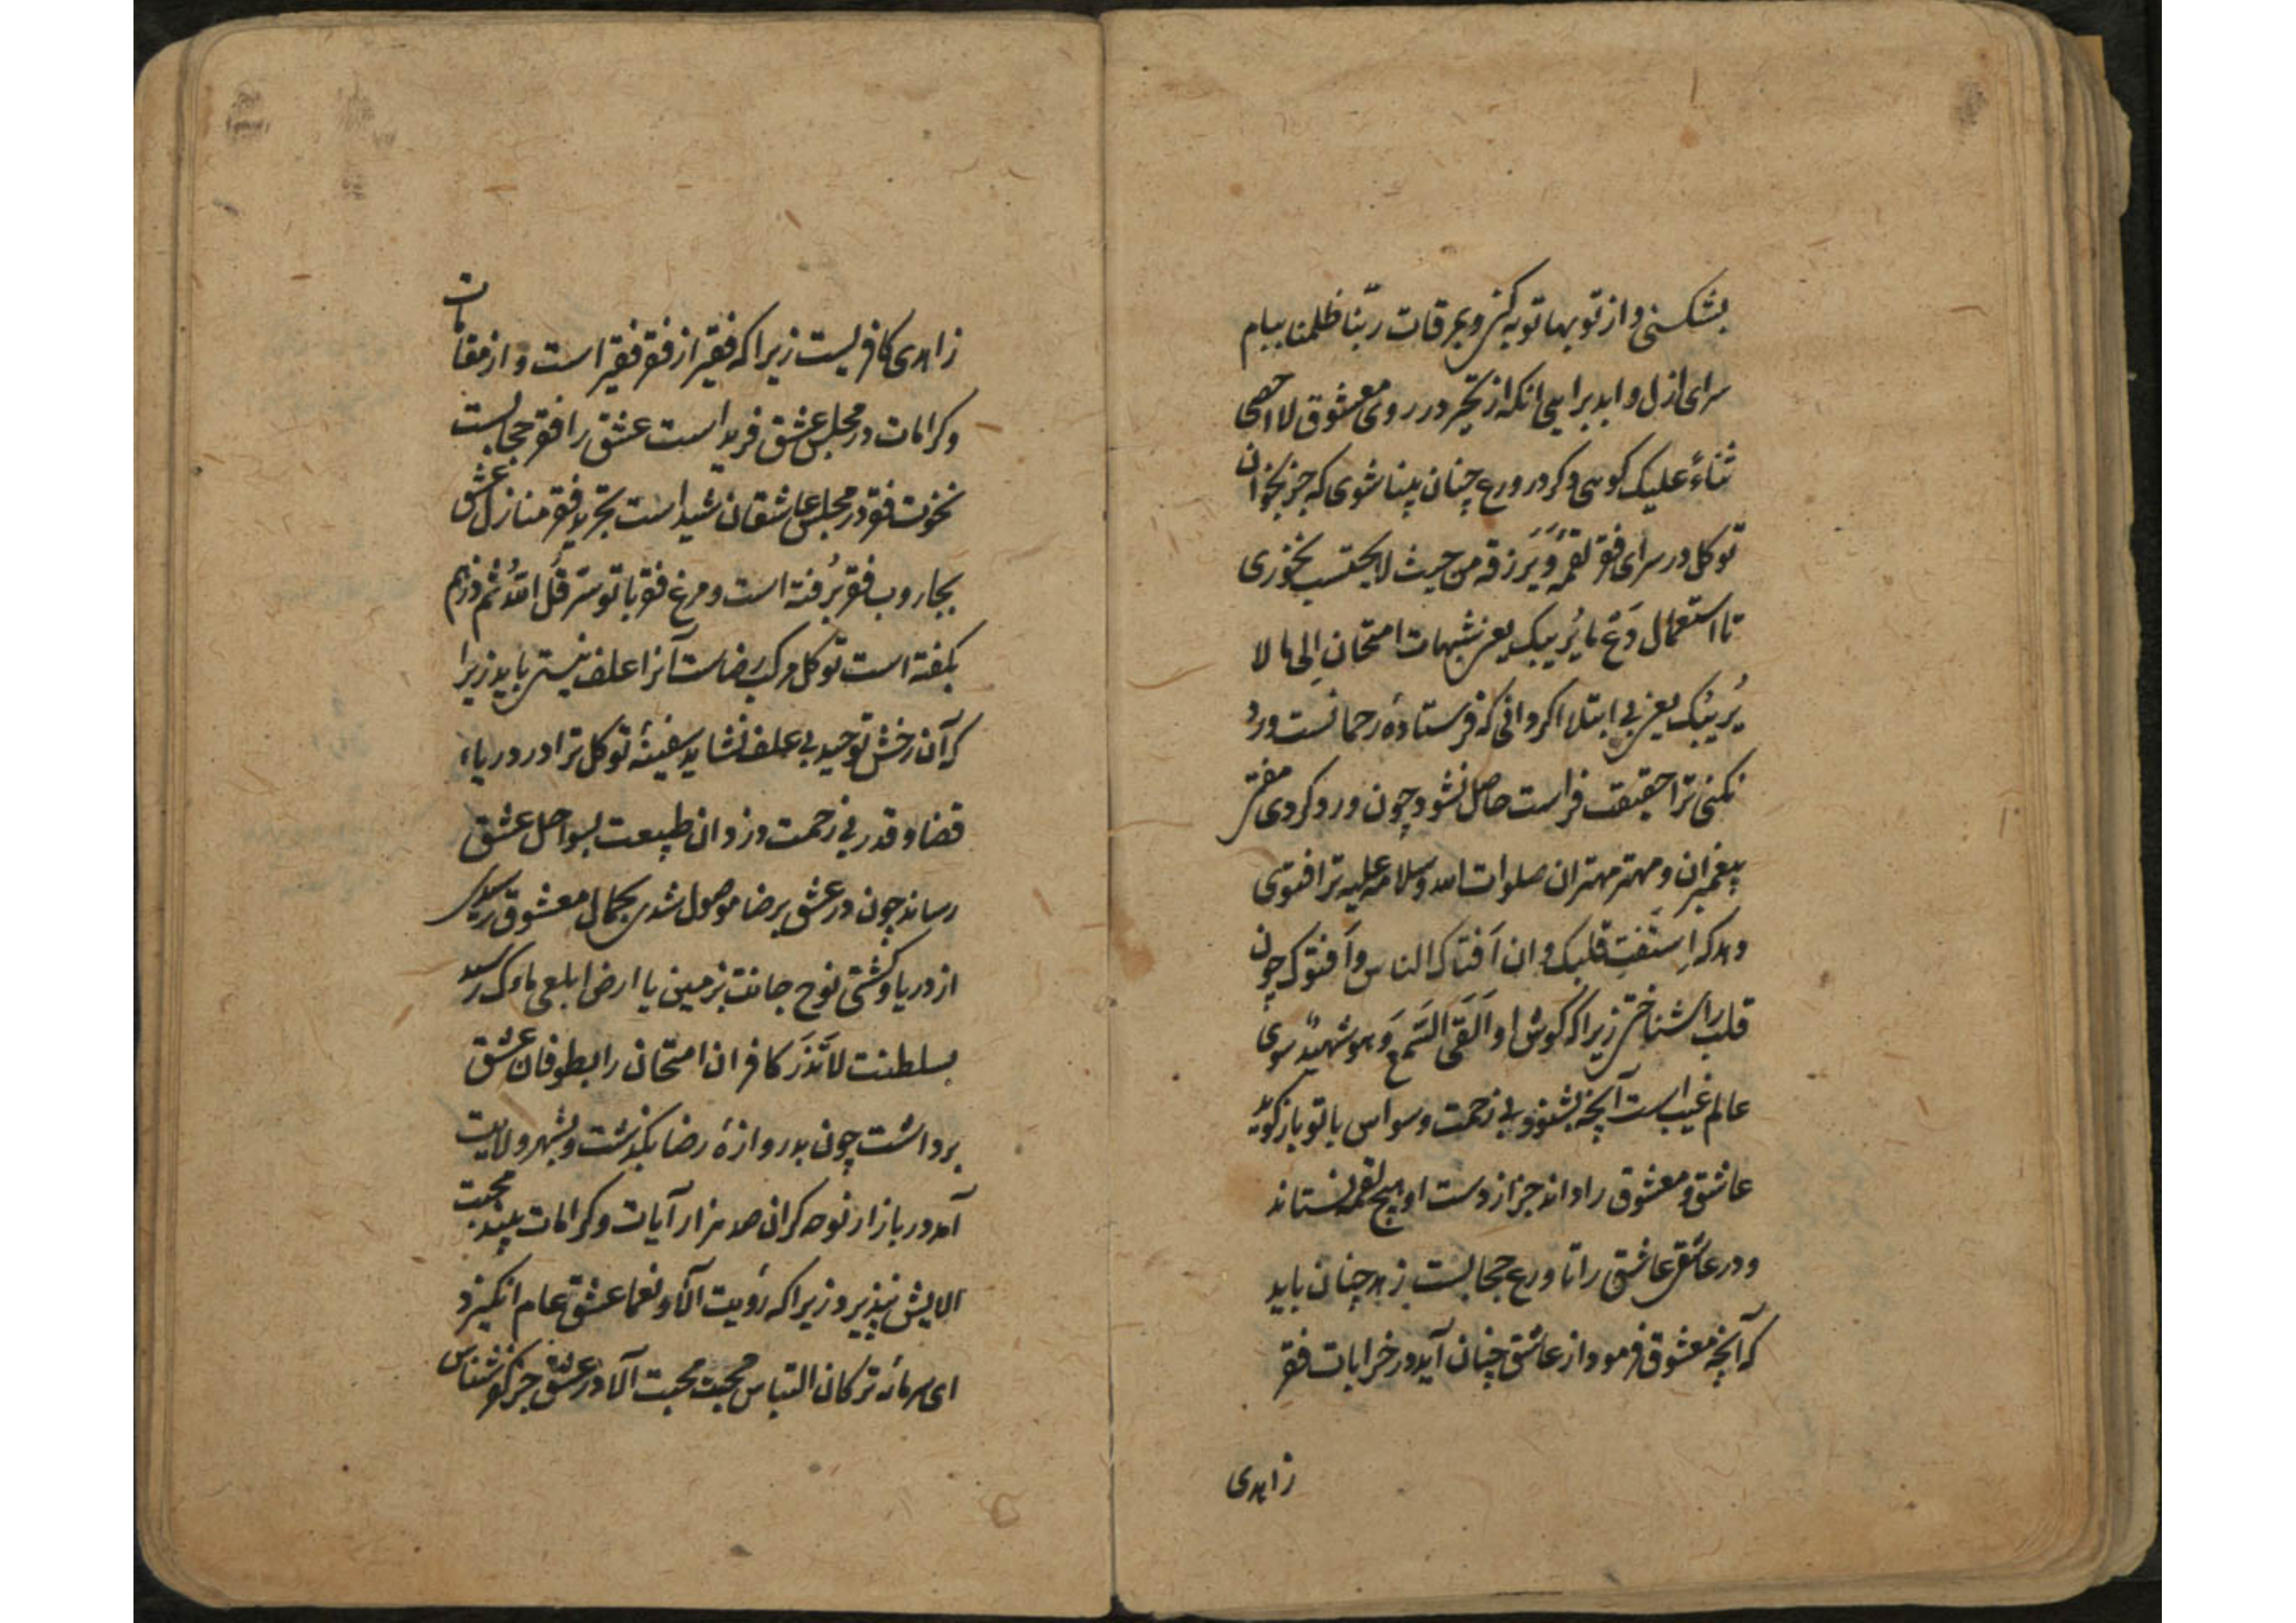 بشکنی و از توبها توبه کنی و بعرقات ربّنا ظلمنا ببام
سرای ازل و ابد برایی انکه از تحیّر در روی معشوق لا احصی
ثناءً علیک کویی و کرد ورع چنان بینا شوی که جز بخوان
توکل در سرای فقر لقمهٔ وَیَرزقه من حیث لا یحتسب نخوری
تا استعمال دَعْ ما یُریبک یعنی شبهات امتحان اِلی ما لا
یُریبُک یعنی بی ابتلا اکر دانی که فرستادهٔ رحمانست ورد
نکنی ترا حقیقت فراست حاصل نشود چون ورد کردی
پیغمبران و مهتر مهتران صلوات الله و سلامه علیه ترا فتوی
دهد که اِستَفتِ قلبک و ان اَفتاک الناس و اَفتوک چون
قلب را شناختی زیرا که کوش او اَلقَی السّمع وَهو شهیدٌ سوی
عالم غیب است آنچه بشنود بی زحمت وسواس با تو باز کوید
عاشق و معشوق را داند جز از دست او هیچ لقمه نستاند
و در عاشقی عاشق را تا ورع حجابست زهد چنان باید
که آنچه معشوق فرمود از عاشق چنان آید در خرابات فقر
زاهدی
زاهدی کافریست زیرا که فقیر از فقر فقیر است و از مقامات
و کرامات در مجلس عشق فرید است عشق را فقر حجابست
نخوت فقر در مجلس عاشقان شید است تجرید فقر منازل عشق
بجاروب فقر بُرفته است و مرغ فقر با تو سرّ قل اللهُ ثم ذرهم
بکفته است توکل مرکب رضاست آنرا علف نیستی باید زیرا
که آن رخش توحید بی علف نشاید سفینهٔ توکل ترا در دریاء
قضا و قدر بی زحمت دزدان طبیعت بسواحل عشق
رساند چون در عشق برضا موصول شدی بجمال معشوق رسیدی
از دریا و کشتی نوح جانت بزمین یا ارض ابلعی ماءک رسید
بسلطنت لا تَذَر کافران امتحان را بطوفان عشق
برداشت چون بدروازهٔ رضا بگذشت و بشهر ولایت
آمد در بازار نوحه کران صد هزار آیات و کرامات بیند محبت
الایش نپذیرد زیرا که رؤیت آلاء و نعما عشق عام انکیزد
ای سرمایهٔ ترکان التباس محبت محبت آلا در عشق جز نکو شناس